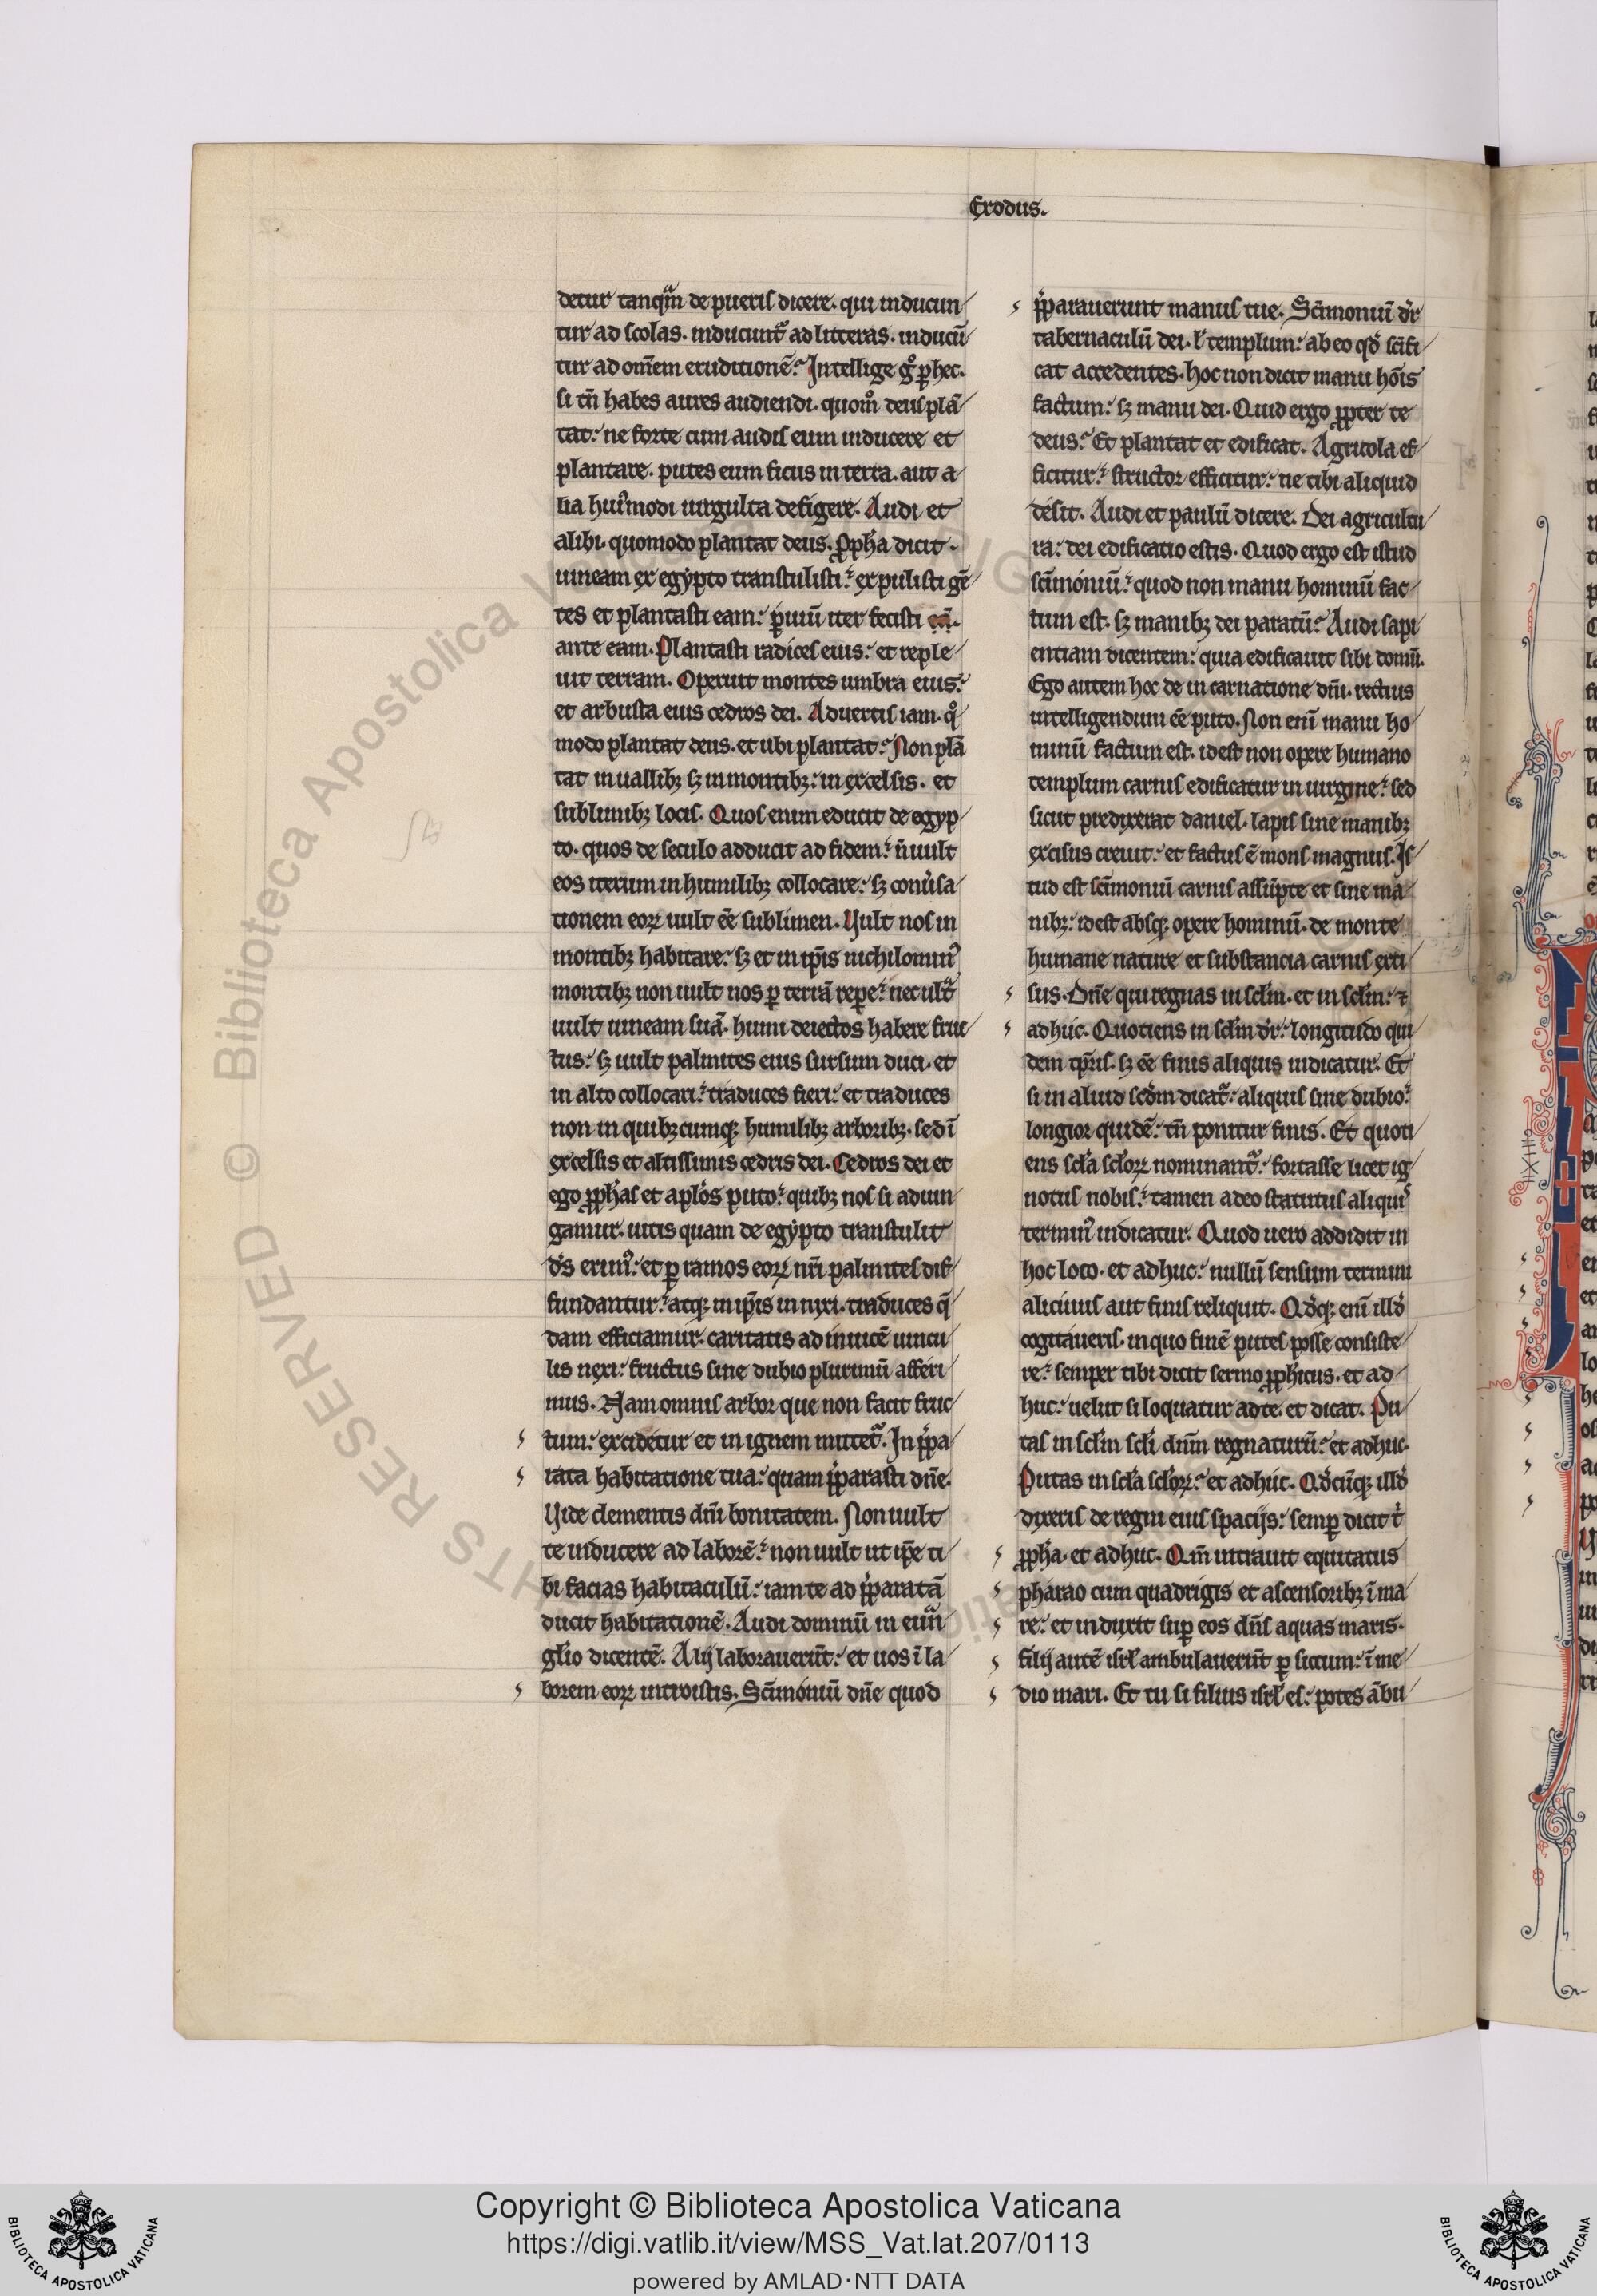 Exodus.
detur tanqͣm de pueris dicere. qui inducun
tur ad scolas. inducunt᷑ ad litteras. inducū
tur ad omēm eruditionē. Intellige gͦ ꝑ hec.
si tn̄ habes aures audiendi. quomͦ deus plā
tat. ne forte cum audis eum inducere et
plantare. putes eum ficus in terra. aut a
lia huiꝰmodi uirgulta defigere. Audi et
alibi. quomodo plantat deus. ꝓph̄a dicit.
uineam ex egypto transtulisti. expulisti gē
tes et plantasti eam. ꝑuiū iter fecisti
ante eam. Plantasti radices eius. et reple
uit terram. Operuit montes umbra eius.
et arbusta eius cedros dei. Aduertis iam. qͦ
modo plantat deus. et ubi plantat. Non plā
tat in uallibꝫ sꝫ in montibꝫ. in excelsis. et
sublimibꝫ locis. Quos enim educit de egyp
to. quos de seculo adducit ad fidem. n̄ uult
eos iterum in humilibꝫ collocare. sꝫ conu̓sa
tionem eoꝝ uult eē sublimen. Uult nos in
montibꝫ habitare. sꝫ et in ip̄is nichilominꝰ
montibꝫ non uult nos ꝑ terrā repe. nec ultͣ
uult uineam suā. humi deiectos habere fruc
tus. sꝫ uult palmites eius sursum duci. et
in alto collocari. traduces fieri. et traduces
non in quibꝫcumqꝫ humilibꝫ arboribꝫ. sed ī
excelsis et altissimis cedris dei. Cedros dei et
ego ꝓph̄as et apl̄os puto. quibꝫ nos si adiun
gamur. uitis quam de egypto transtulit
d̄s erimꝰ. et ꝑ ramos eoꝝ nr̄i palmites dif
fundantur. atqꝫ in ip̄is innixi. traduces q̄
dam efficiamur. caritatis ad inuicē uincu
lis nexi. fructus sine dubio plurimū afferi
mus. Nam omnis arbor que non facit fruc
tum. excidetur et in ignem mittet᷑. In p̄pa
rata habitatione tua. quam p̄parasti dn̄e.
Uide clementis dn̄i bonitatem. Non uult
te inducere ad laborē. non uult ut ip̄e ti
bi facias habitaculū. iam te ad p̄paratā
ducit habitationē. Audi dominū in euͣn
glio dicentē. Alij laborauerūt. et uos ī la
borem eoꝝ introistis. Sc̄imoniū dn̄e quod
p̄parauerunt manus tue. Sc̄imoniū dr̄
tabernaculū dei. ł templum. ab eo qd̓ sc̄ifi
cat accedentes. hoc non dicit manu hoīs
factum. sꝫ manu dei. Quid ergo ꝓpter te
deus. Et plantat et edificat. Agricola ef
ficitur. structor efficitur. ne tibi aliquid
desit. Audi et paulū dicere. Dei agricultu
ra. dei edificatio estis. Quod ergo est istud
sc̄imoniū. quod non manu hominū fac
tum est. sꝫ manibꝫ dei paratū. Audi sapi
entiam dicentem. quia edificauit sibi domū.
Ego autem hoc de incarnatione dn̄i. rectius
intelligendum eē puto. Non eni᷑ manu ho
minū factum est. idest non opere humano
templum carnis edificatur in uirgine. sed
sicut predixerat daniel. lapis sine manibꝫ
excisus creuit. et factus ē mons magnus. Is
tud est sc̄imoniū carnis assūpte et sine ma
nibꝫ. idest absqꝫ opere hominū. de monte
humane nature et substancia carnis exci
sus. Dn̄e qui regnas in sclm̄. et in sclm̄. ⁊
adhuc. Quotiens in sclm̄ dr̄. longitudo qui
dem tp̄ris. sꝫ eē finis aliquis indicatur. Et
si in aliud scd̄m dicat᷑. aliquis sine dubio.
longior quidē. tn̄ ponitur finis. Et quoti
ens scl̄a scl̄oꝝ nominant᷑. fortasse licet ig
notus nobis. tamen a deo statutus aliquis
terminꝰ indicatur. Quod uero addidit in
hoc loco. et adhuc. nullū sensum termini
alicuius aut finis reliquit. Qd̓cqꝫ enī illd̓
cogitaueris. in quo finē putes posse consiste
re. semper tibi dicit sermo ꝓph̄icus. et ad
huc. uelut si loquatur ad te. et dicat. Pu
tas in sclm̄ scl̄i dnm̄ regnaturū. et adhuc.
Putas in scl̄a scl̄oꝝ. et adhuc. Qd̓cūqꝫ illd̓
dixeris de regni eius spacijs. semꝑ dicit t̓
ꝓph̄a. et adhuc. Qm̄ intrauit equitatus
pharao cum quadrigis et ascensoribꝫ ī ma
re. et induxit suꝑ eos dn̄s aquas maris.
filij autē isrł ambulauerūt ꝑ siccum. ī me
dio mari. Et tu si filius isrł es. potes ābu
Copyright © Biblioteca Apostolica Vaticana
https://digi.vatlib.it/view/MSS_Vat.lat.207/0113
powered by AMLAD·NTT DATA